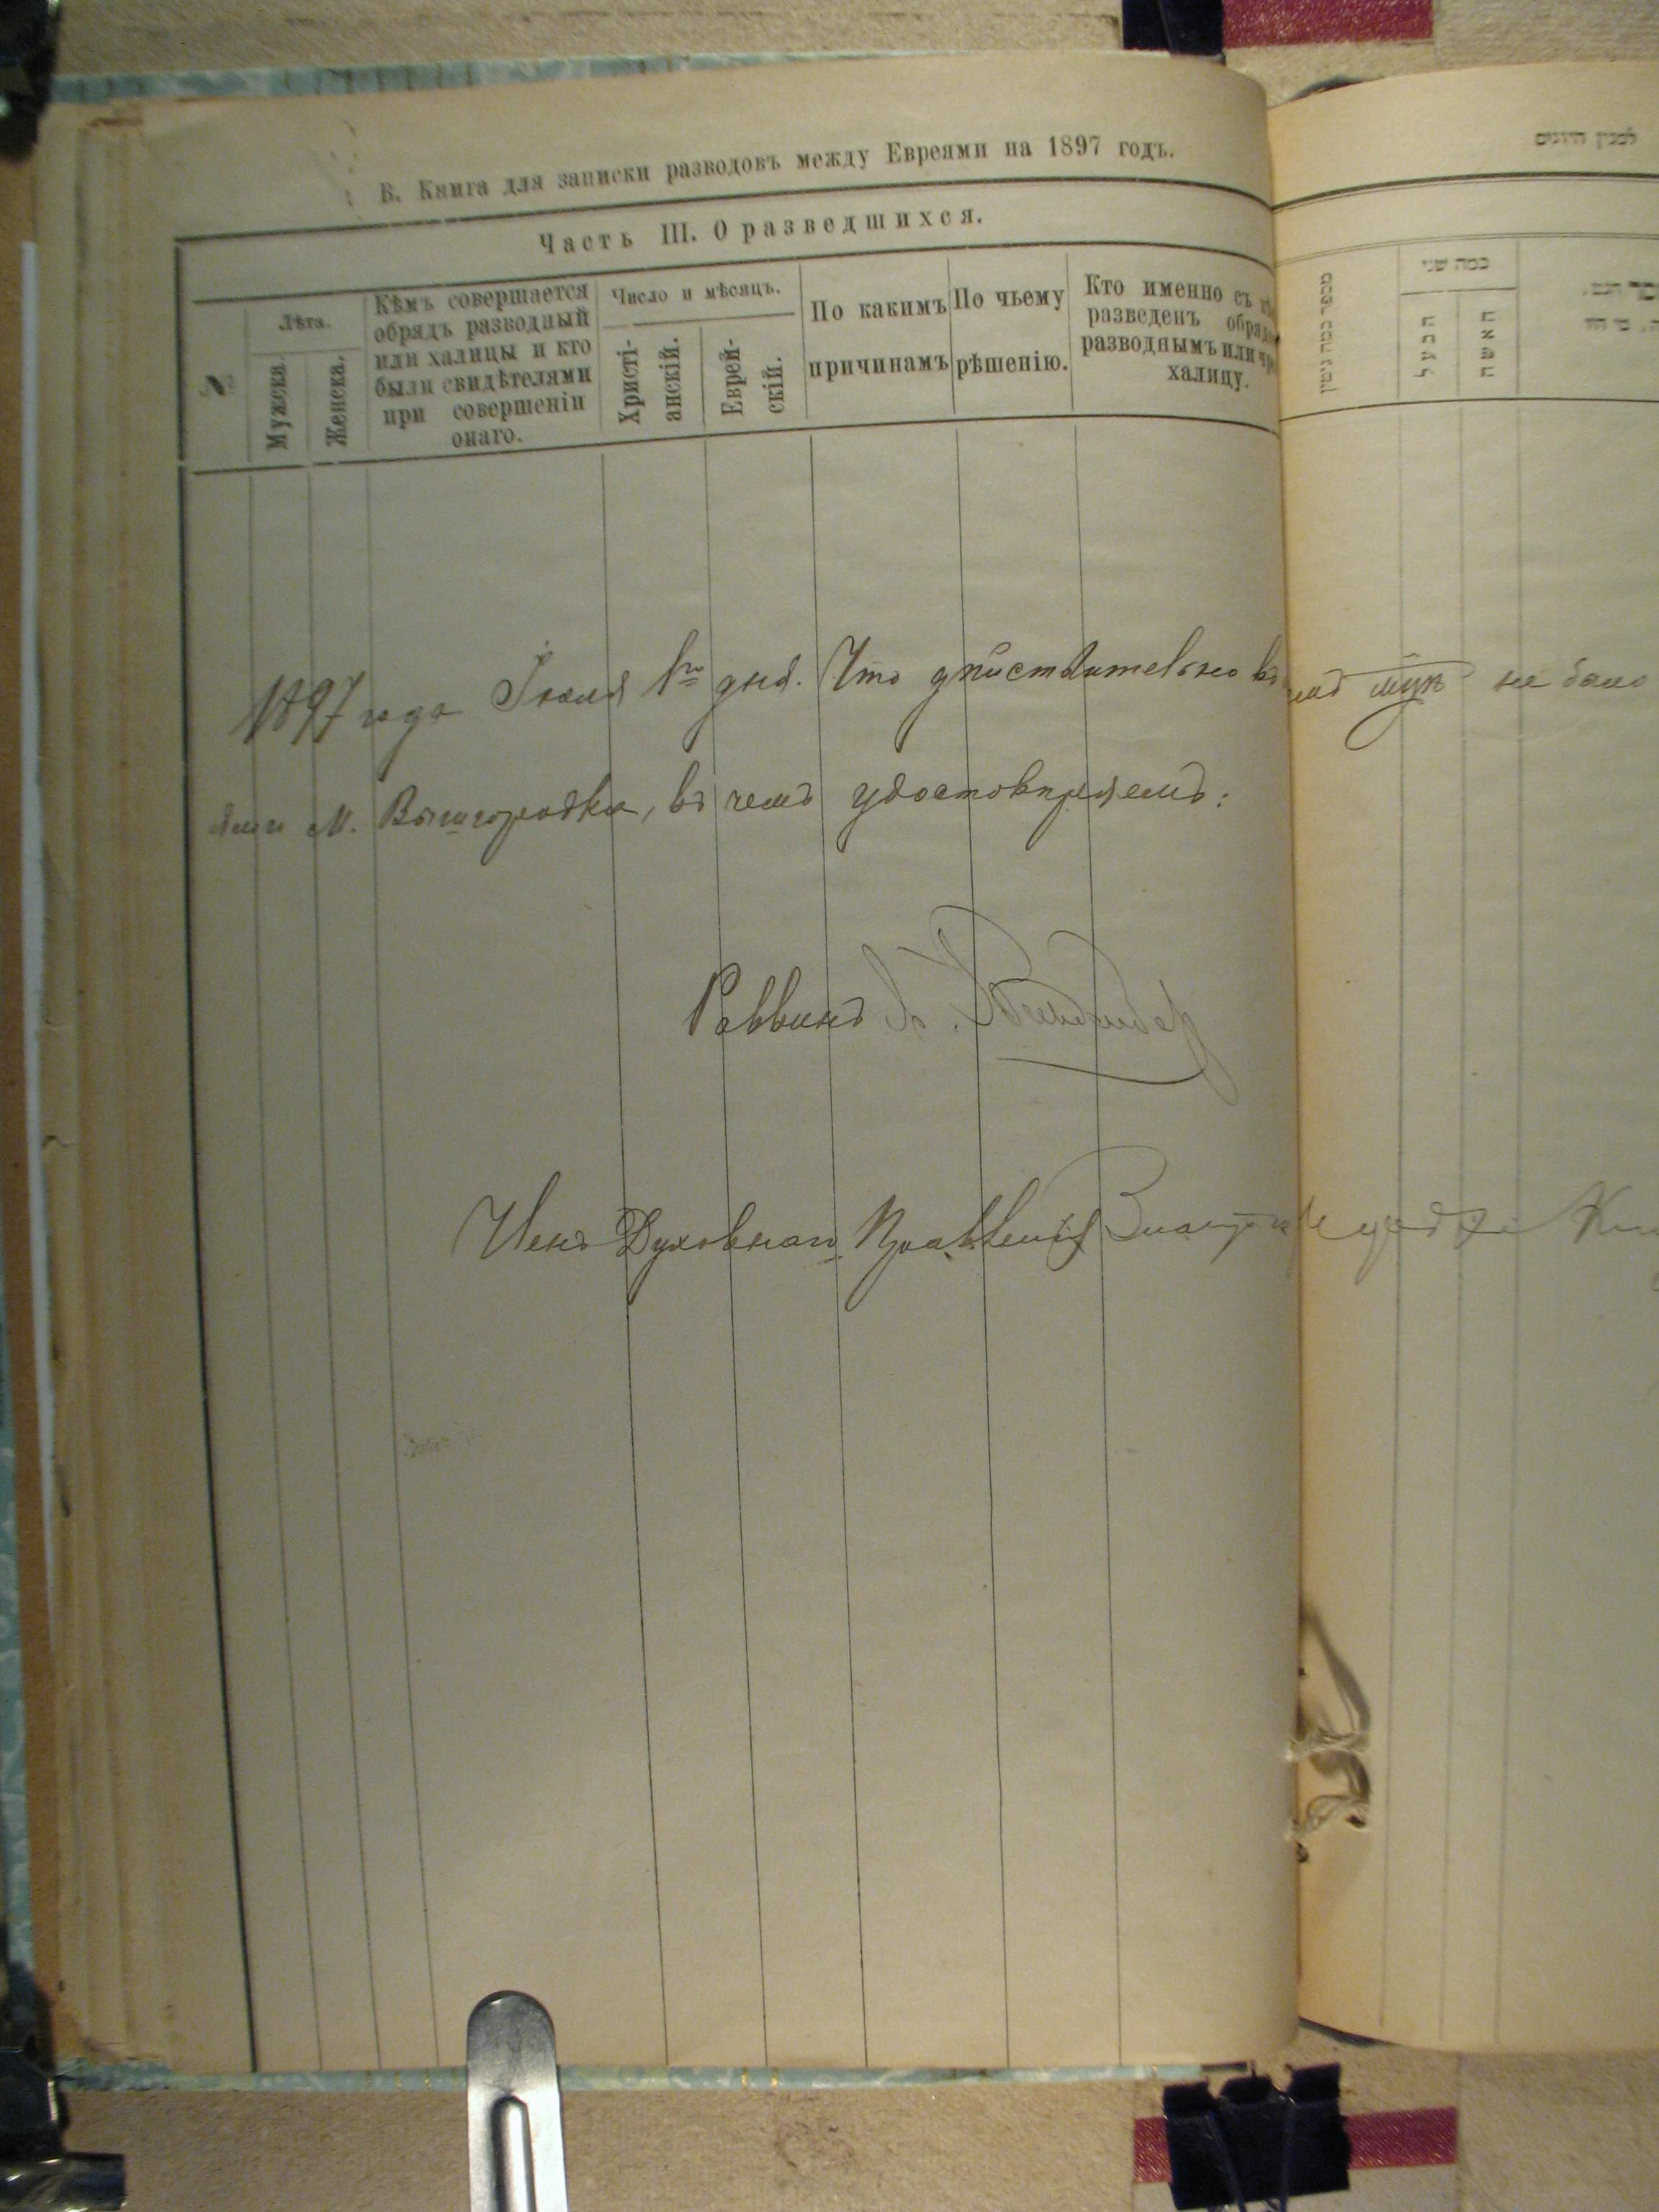 В. Книга для записки разводовъ между Евреями на 1897 годъ.
Часть III. О разведшихся.
№
Лѣта.
Мужска.
Женска.
Кѣмъ совершается
обрядъ разводный
или халицы и кто
были свидѣтелями
при совершеніи
онаго.
Число и мѣсяцъ.
Христі-
анскій.
Еврей-
скій.
По какимъ
причинамъ
По чьему
рѣшенію.
Кто именно съ
разведенъ
разводнымъ или
халицу.
כמה שני
הבעל
האשה
1897 года Іюля 1го дня. Что дѣйствительно въ не было
М. Вышгородка, въ чемъ удостовѣряемъ:
Раввинъ
Членъ Духовнаго Правленія